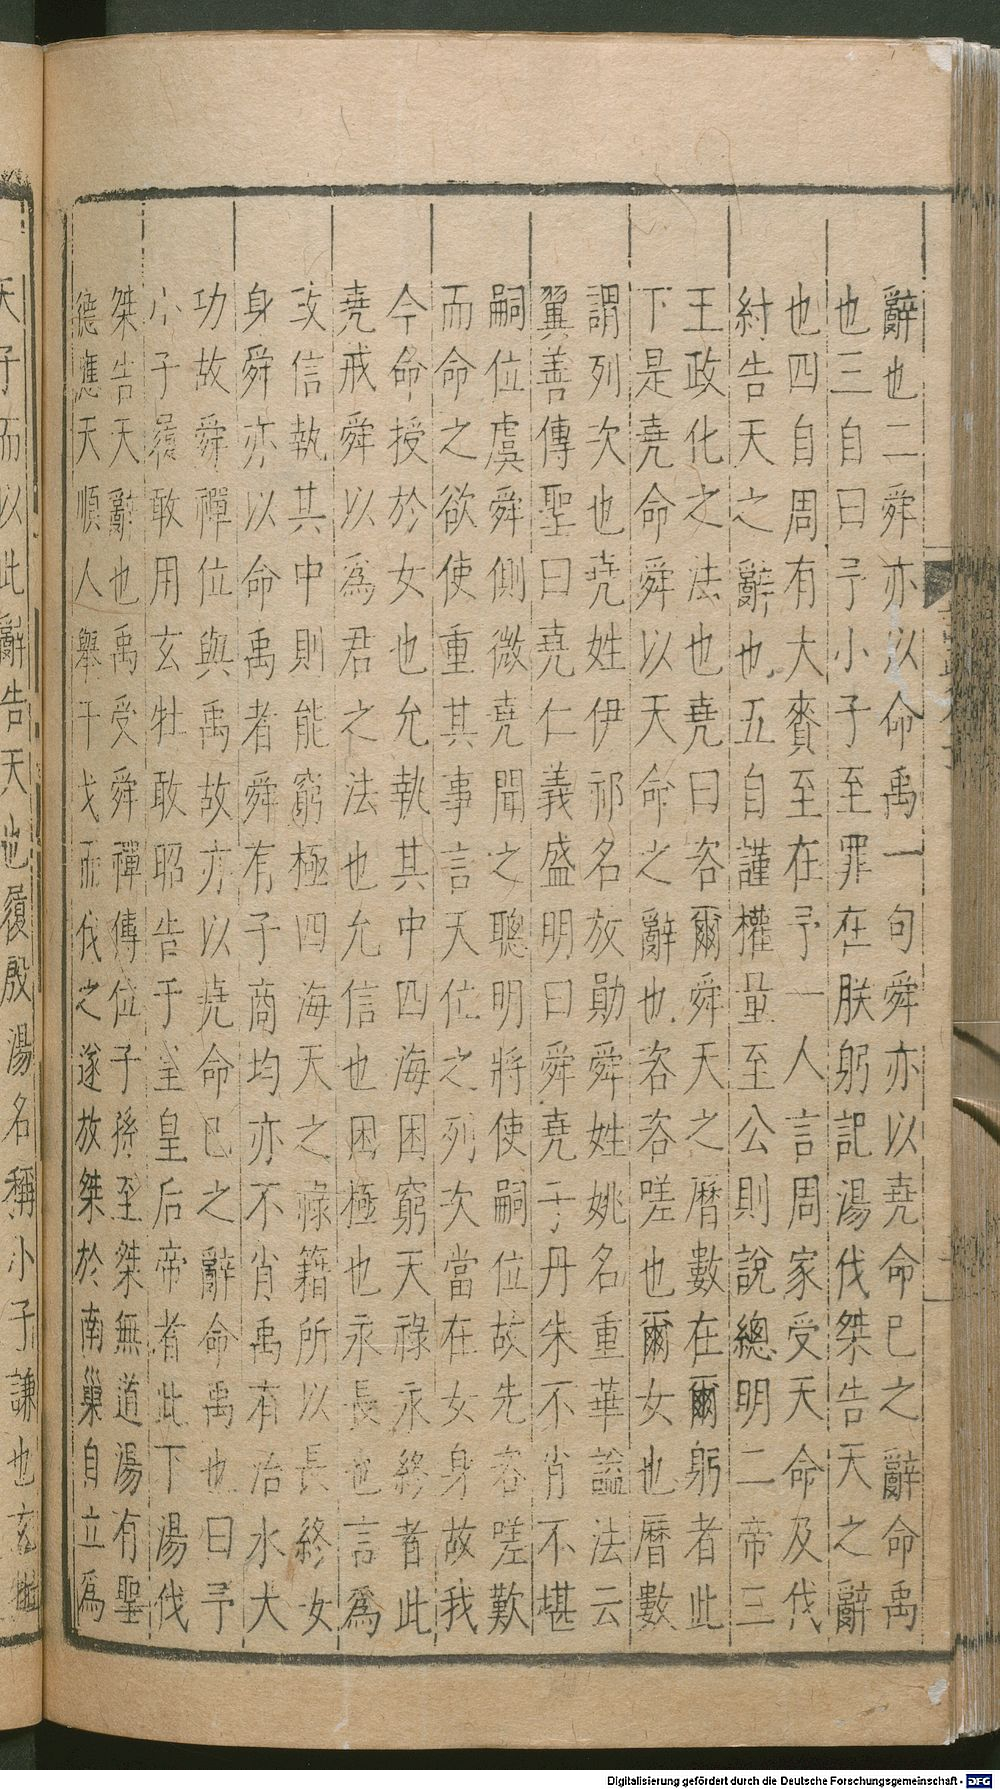 辭也二舜亦以命禹一句舜亦以堯命已之辭命禹
也三自曰予小子至罪在朕躬記湯伐桀告天之辭
也四自周有大賚至在予一人言周家受天命及伐
紂告天之辭也五自謹權量至公則說總明二帝三
王政化之法也堯曰咨爾舜天之曆數在爾躬者此
下是堯命舜以天命之辭也咨咨嗟也爾女也曆數
謂列次也堯姓伊祁名放勛舜姓姚名重華謚法云
翼善傳聖曰堯仁義盛明曰舜堯子丹朱不肖不堪
嗣位虞舜側微堯聞之聰明將使嗣位故先咨嗟歎
而命之欲使重其事言天位之列次當在女身故我
今命授於女也允執其中四海困窮天祿永終者此
堯戒舜以爲君之法也允信也困極也永長也言爲
政信執其中則能窮極四海天之祿籍所以長終女
身舜亦以命禹者舜有子商均亦不肖禹有治水大
功故舜禪位與禹故亦以堯命已之辭命禹也曰予
小子履敢用玄牡敢昭告于皇皇后帝者此下湯伐
桀告天辭也禹受舜禪傳位子孫至桀無道湯有聖
德應天順人舉干戈而伐之遂放桀於南巢自立爲
天子而以此辭告天也履殷湯名稱小子謙也玄牡
Digitalisierung gefördert durch die Deutsche Forschungsgemeinschaft - DFG